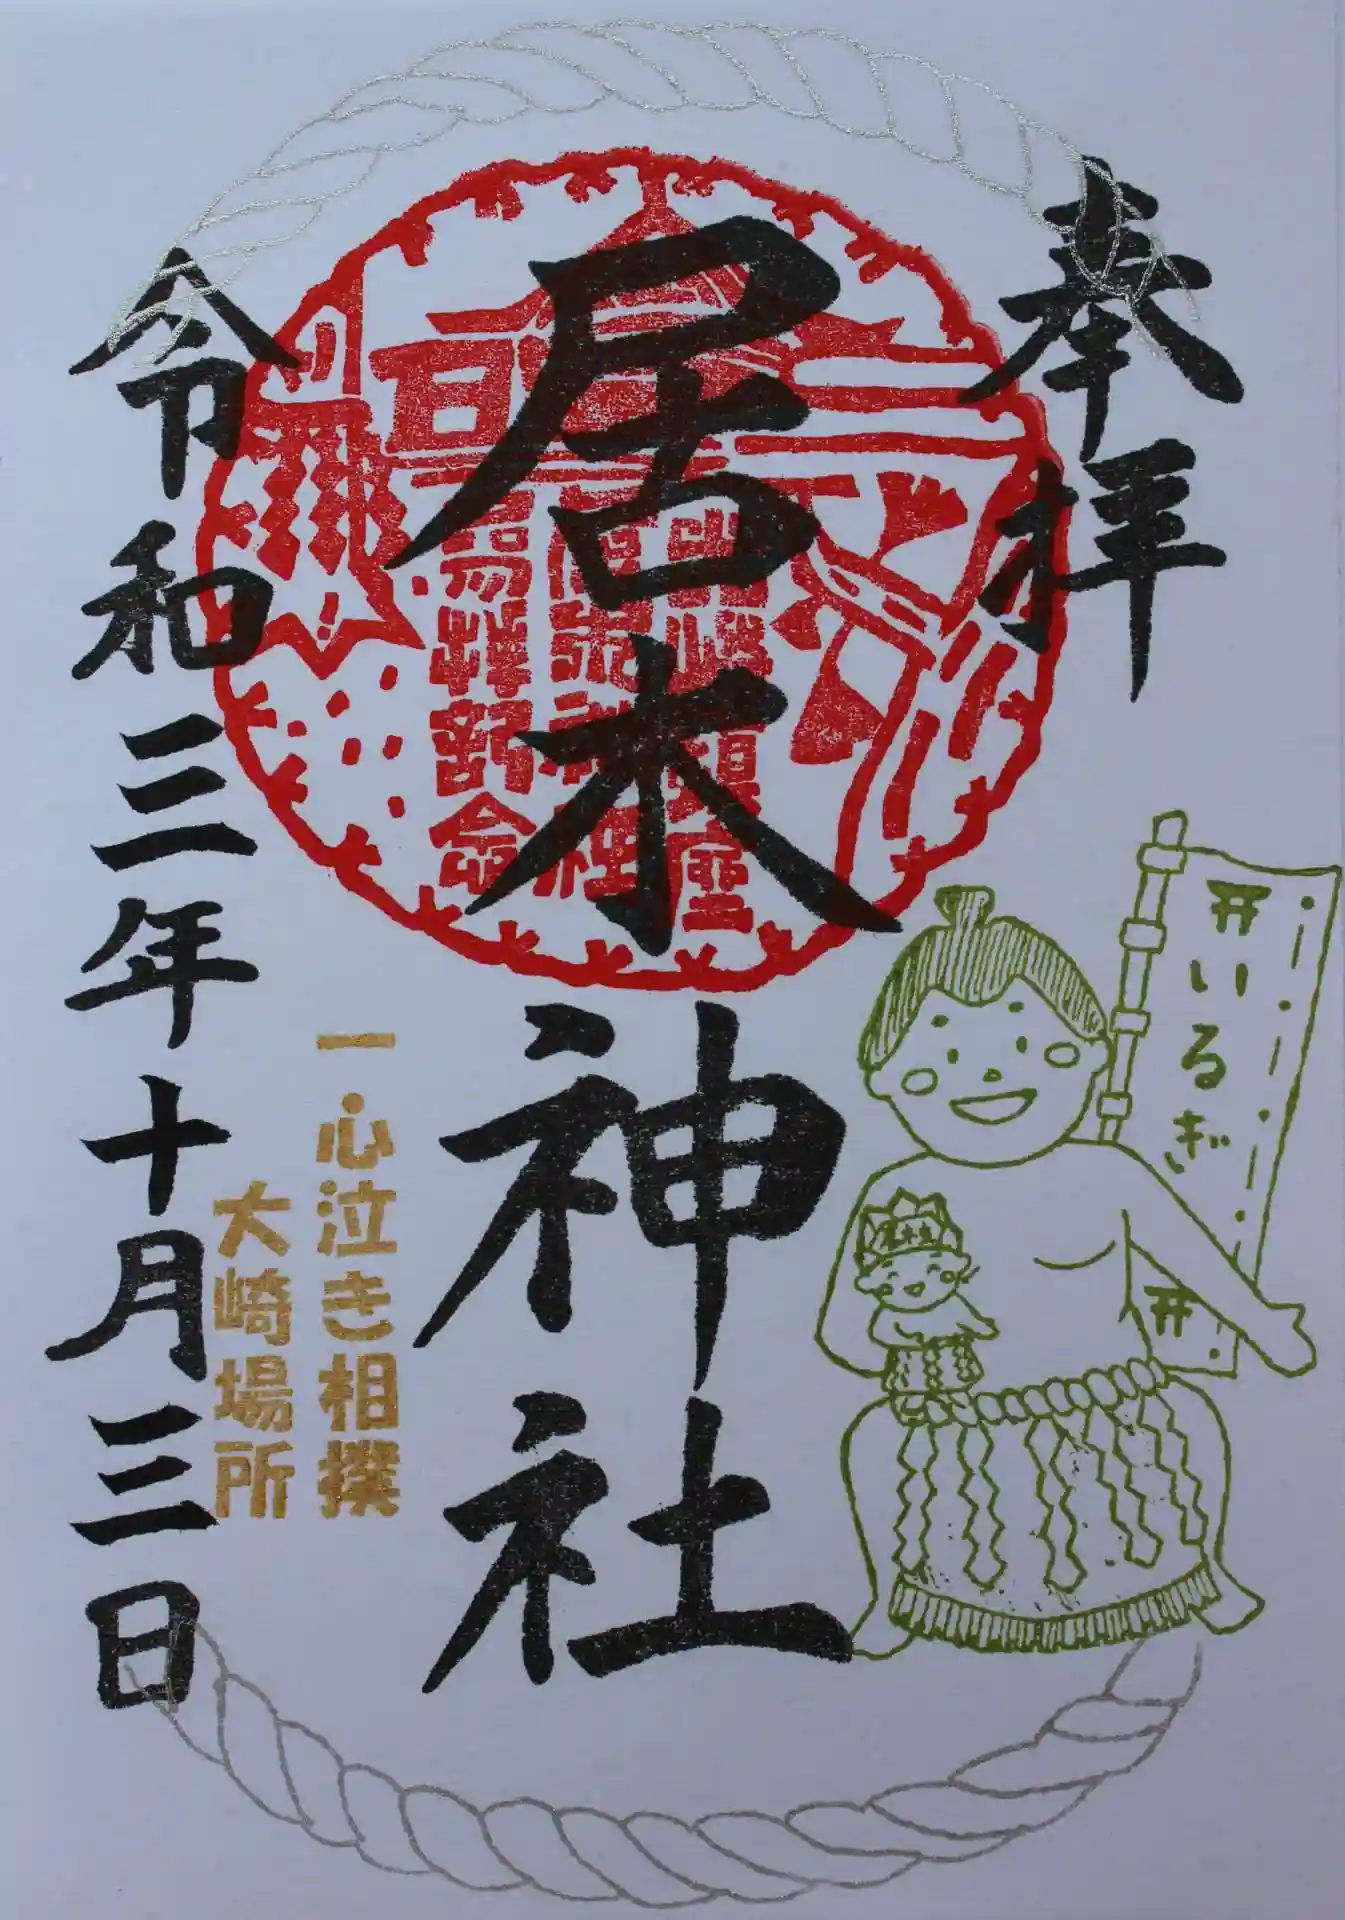 奉拝
居木神社
一心泣き相撲
大崎場所
令和三年十月三日
いるぎ